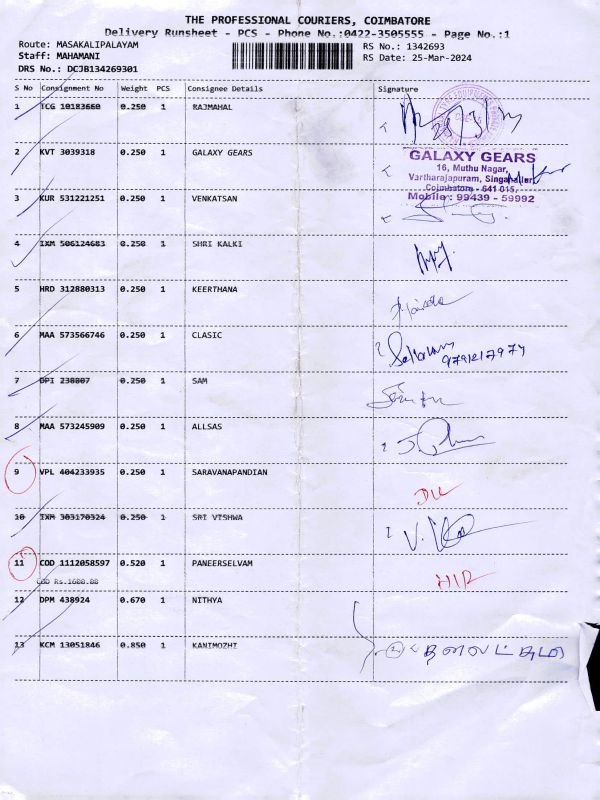 THE PROFESSIONAL COURIERS, COIMBATORE
Delivery Runsheet - PCS - Phone No.:0422-3505555 - Page No.:1
Route: MASAKALIPALAYAM RS No.: 1342693
Staff: MAHAMANI RS Date: 25-Mar-2024
DRS No.: DCJB134269301
S No Consignment No Weight PCS Consignee Details Signature
1 TCG 10183660 0.250 1 RAJMAHAL
2 KVT 3039318 0.250 1 GALAXY GEARS
GALAXY GEARS
16, Muthu Nagar,
Vartharajapuram, Singanallur,
Coimbatore - 641 015.
Mobile : 99439 - 59992
3 KUR 531221251 0.250 1 VENKATSAN
4 IXM 506124683 0.250 1 SHRI KALKI
5 HRD 312880313 0.250 1 KEERTHANA
6 MAA 573566746 0.250 1 CLASIC
7 DPI 238807 0.250 1 SAM
8 MAA 573245909 0.250 1 ALLSAS
9 VPL 404233935 0.250 1 SARAVANAPANDIAN
10 IXM 303170324 0.250 1 SRI VISHWA
11 COD 1112058597 0.520 1 PANEERSELVAM
COD Rs.1600.00
12 DPM 438924 0.670 1 NITHYA
13 KCM 13051846 0.850 1 KANIMOZHI